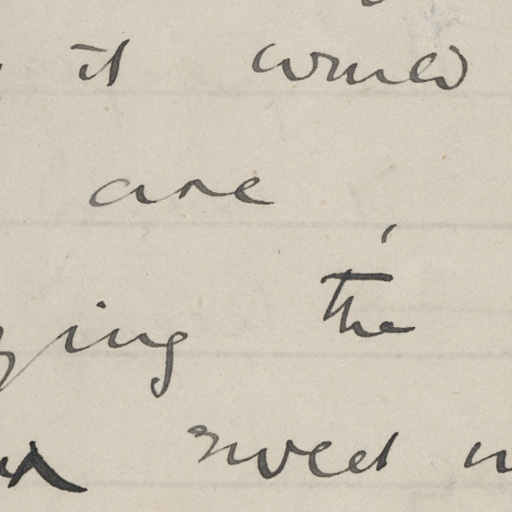 it would
are ,
ying the
sweet